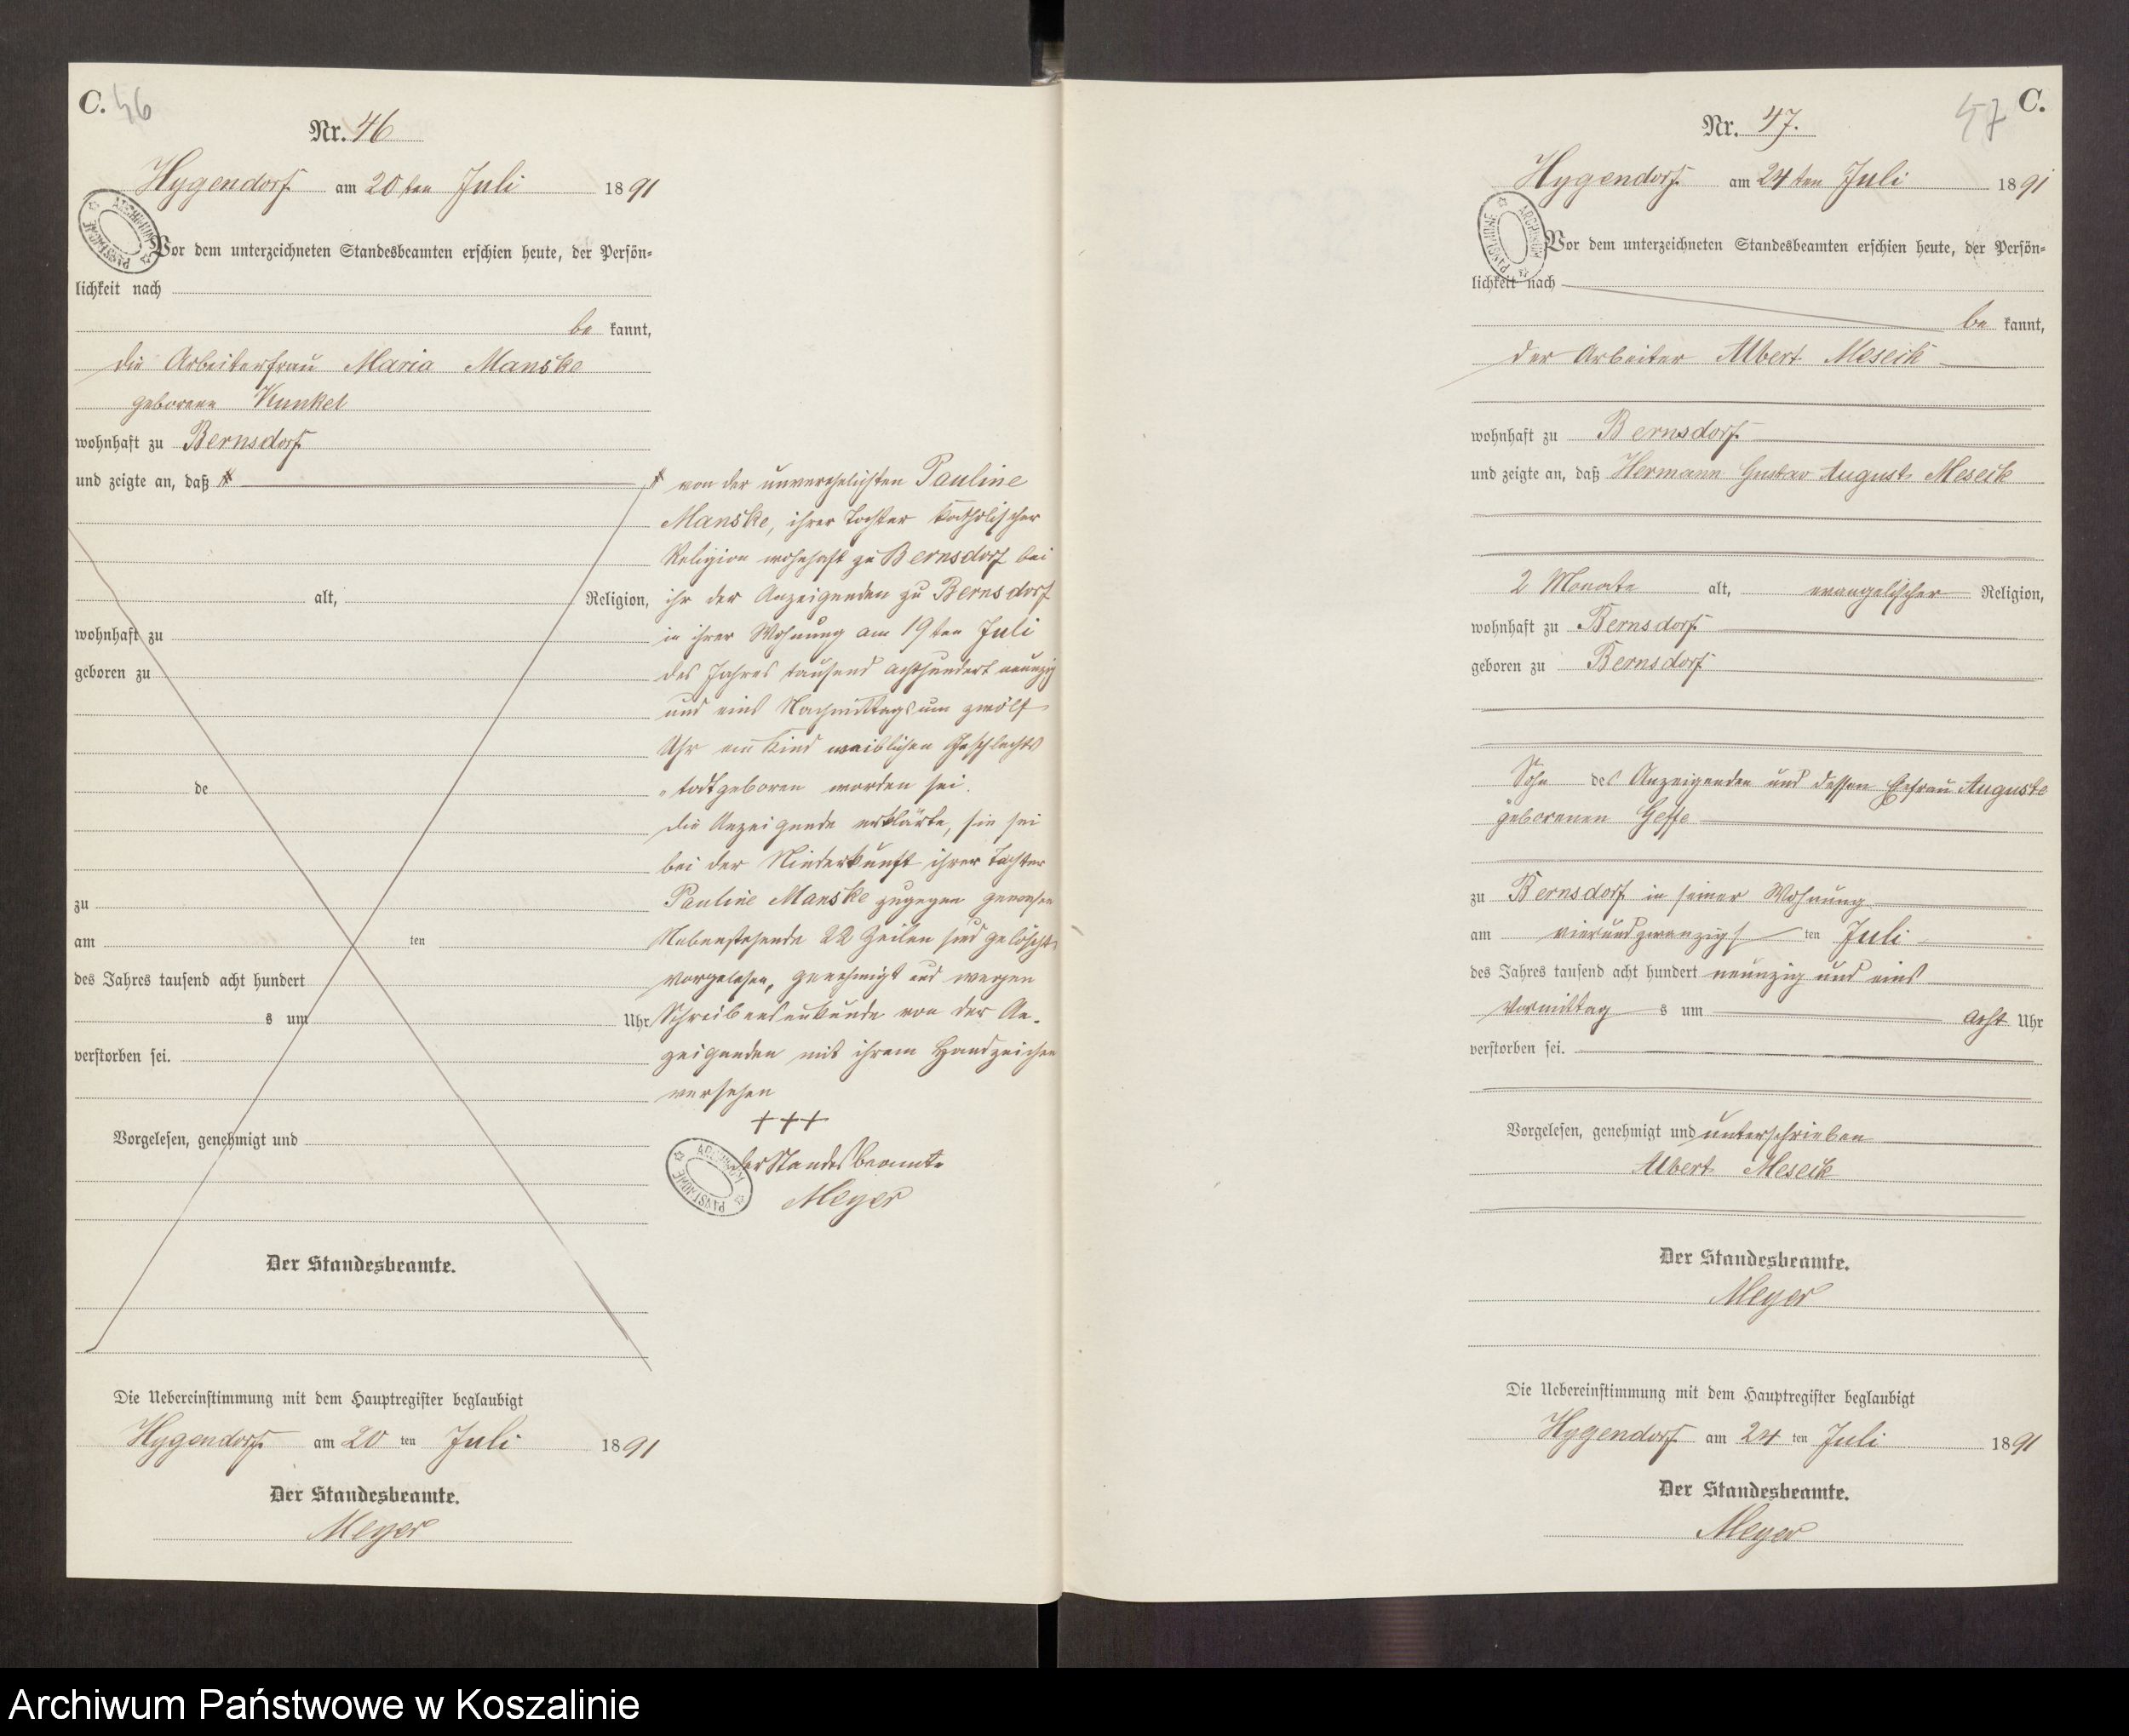 C. 46
Nr. 46
Hygendorf am 20ten Juli 1891
Vor dem unterzeichneten Standesbeamten erschien heute, der Persön-
lichkeit nach
be kannt,
die Arbeiterfrau Maria Manske
geborene Kunkel
wohnhaft zu Bernsdorf
und zeigte an, daß
alt, Religion,
wohnhaft zu
geboren zu
de
zu
am ten
des Jahres tausend acht hundert
s um Uhr
verstorben sei.
Vorgelesen, genehmigt und
Der Standesbeamte.
von der unverehelichten Pauline
Manske, ihrer Tochter katholischer
Religion wohnhaft zu Bernsdorf bei
ihr der Anzeigenden zu Bernsdorf
in ihrer Wohnung am 19ten Juli
des Jahres tausend achthundert neunzig
und eins Nachmittags um zwölf
Uhr ein Kind weiblichen Geschlechts
todtgeboren worden sei.
Die Anzeigende erklärte, sie sei
bei der Niederkunft ihrer Tochter
Pauline Manske zugegen gewesen
Nebenstehende 22 Zeilen sind gelöscht.
Vorgelesen, genehmigt und wegen
Schreibensunkunde von der An-
zeigenden mit ihrem Handzeichen
versehen
+++
Der Standesbeamte
Meyer
Die Uebereinstimmung mit dem Hauptregister beglaubigt
Hygendorf am 20 ten Juli 1891
Der Standesbeamte.
Meyer
47 C.
Nr. 47.
Hygendorf am 24ten Juli 1891
Vor dem unterzeichneten Standesbeamten erschien heute, der Persön-
lichkeit nach
be kannt,
der Arbeiter Albert Meseik
wohnhaft zu Bernsdorf
und zeigte an, daß Hermann Gustav August Meseik
2 Monate alt, evangelischer Religion,
wohnhaft zu Bernsdorf
geboren zu Bernsdorf
Sohn des Anzeigenden und dessen Ehefrau Auguste
geborenen
zu Bernsdorf in seiner Wohnung
am vierundzwanzigs ten Juli
des Jahres tausend acht hundert neunzig und eins
Vormittag s um acht Uhr
verstorben sei.
Vorgelesen, genehmigt und unterschrieben
Albert Meseik
Der Standesbeamte.
Meyer
Die Uebereinstimmung mit dem Hauptregister beglaubigt
Hygendorf am 24 ten Juli 1891
Der Standesbeamte.
Meyer
Archiwum Państwowe w Koszalinie